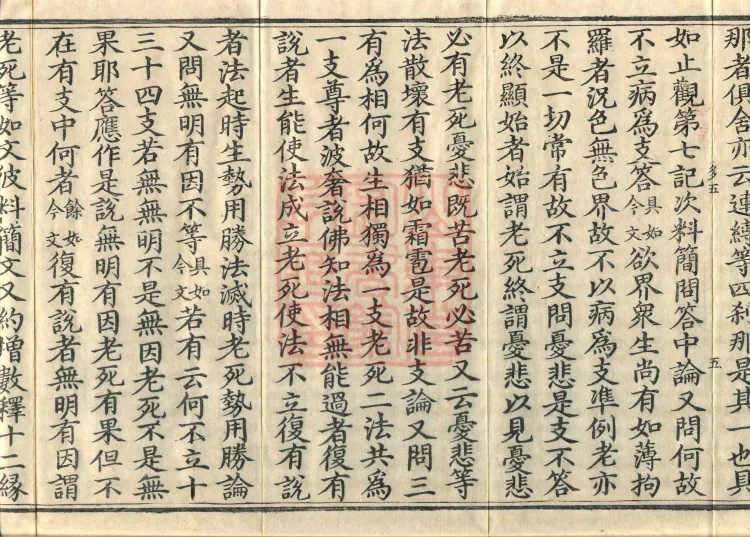 那者俱舍亦云連縛等四刹那是其一也具
如止觀第七記次料簡問答中論又問何故
不立病爲支答具如今文欲界衆生尚有如薄拘
羅者況色無色界故不以病爲支準例老亦
不是一切常有故不立支問憂悲是支不答
以終顯始者始謂老死終謂憂悲以見憂悲
必有老死憂悲既苦老死必苦又云憂悲等
法散壞有支猶如霜雹是故非支論又問三
有爲相何故生相獨爲一支老死二法共爲
一支尊者波奢說佛知法相無能過者復有
說者生能使法成立老死使法不立復有說
者法起時生勢用勝法滅時老死勢用勝論
又問無明有因不等具如今文若有云何不立十
三十四支若無無明不是無因老死不是無
果耶答應作是說無明有因老死有果但不
在有支中何者餘如今文復有說者無明有因謂
老死等如文彼料簡文又約增數釋十二緣
多五
五